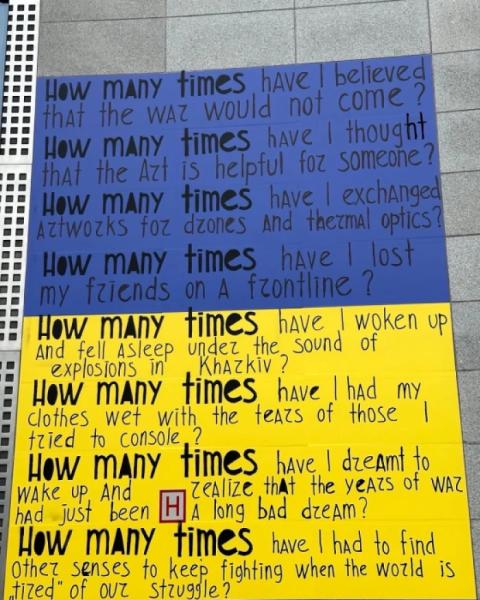 How many times have I believed
that the war would not come?
How many times have I thought
that the Art is helpful for someone?
How many times have I exchanged
Artworks for drones and thermal optics?
How many times have I lost
my friends on a frontline?
How many times have I woken up
and fell asleep under the sound of
explosions in Kharkiv?
How many times have I had my
clothes wet with the tears of those I
tried to console?
How many times have I dreamt to
wake up and realize that the years of war
had just been H a long bad dream?
How many times have I had to find
other senses to keep fighting when the world is
„tired" of our struggle?